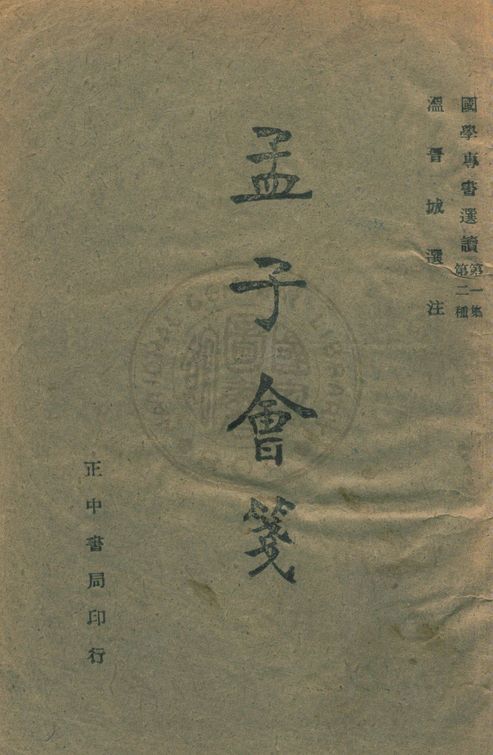 國學專書選讀第一集
第二種
溫晉城選注
孟子會箋
正中書局印行